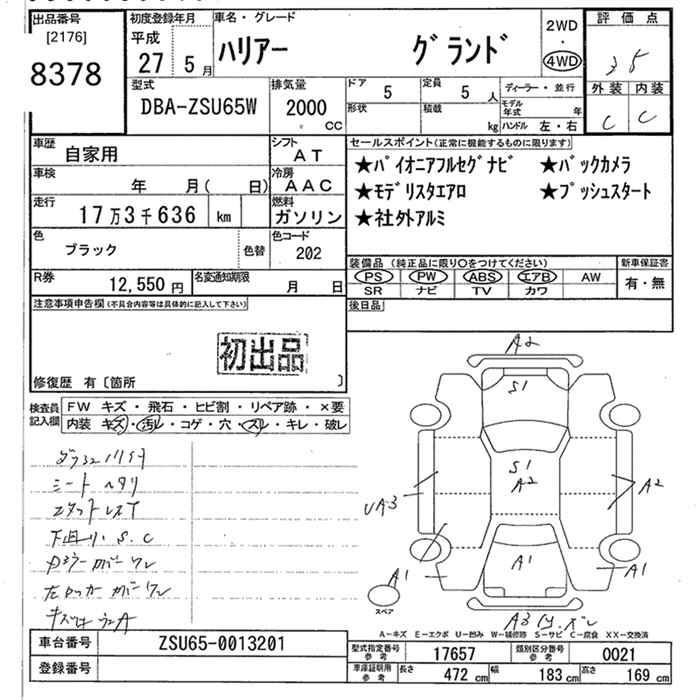 出品番号
[2176]
8378
初度登録年月
平成
27 5月
車名・グレード
ハリアー グランド
2WD
・
4WD
評価点
3 5
外装 内装
C C
型式
DBA-ZSU65W
排気量
2000
CC
ドア
5
定員
5 人
形状
積載
kg
ディーラー・並行
モデル年式 年
ハンドル 左・右
車歴
自家用
シフト
AT
車検
年 月( 日)
冷房
AAC
走行
17万3千636 km
燃料
ガソリン
色
ブラック
色替
色コード
202
セールスポイント(正常に機能するものに限ります)
★パイオニアフルセグナビ ★バックカメラ
★モデリスタエアロ ★プッシュスタート
★社外アルミ
装備品(純正品に限り○をつけてください)
PS PW ABS エアB AW
SR ナビ TV カワ
新車保証書
有・無
R券
12,550円
名変通知期限
月 日
後日品
注意事項申告欄(不具合内容等は具体的に記入して下さい)
初出品
修復歴 有〔箇所 〕
検査員記入欄
FW キズ・飛石・ヒビ割・リペア跡・×要
内装 キズ・汚レ・コゲ・穴・スレ・キレ・破レ
シート ヘタリ
下廻り S.C
A2
S1
S1
A2
UA3
A2
A1
A1
A1
スペア
A-キズ E-エクボ U-凹み W-補修跡 S-サビ C-腐食 XX-交換済
車台番号
ZSU65-0013201
登録番号
型式指定番号 参考
17657
類別区分番号 参考
0021
車庫証明用 参考
長さ 472 cm 幅 183 cm 高さ 169 cm